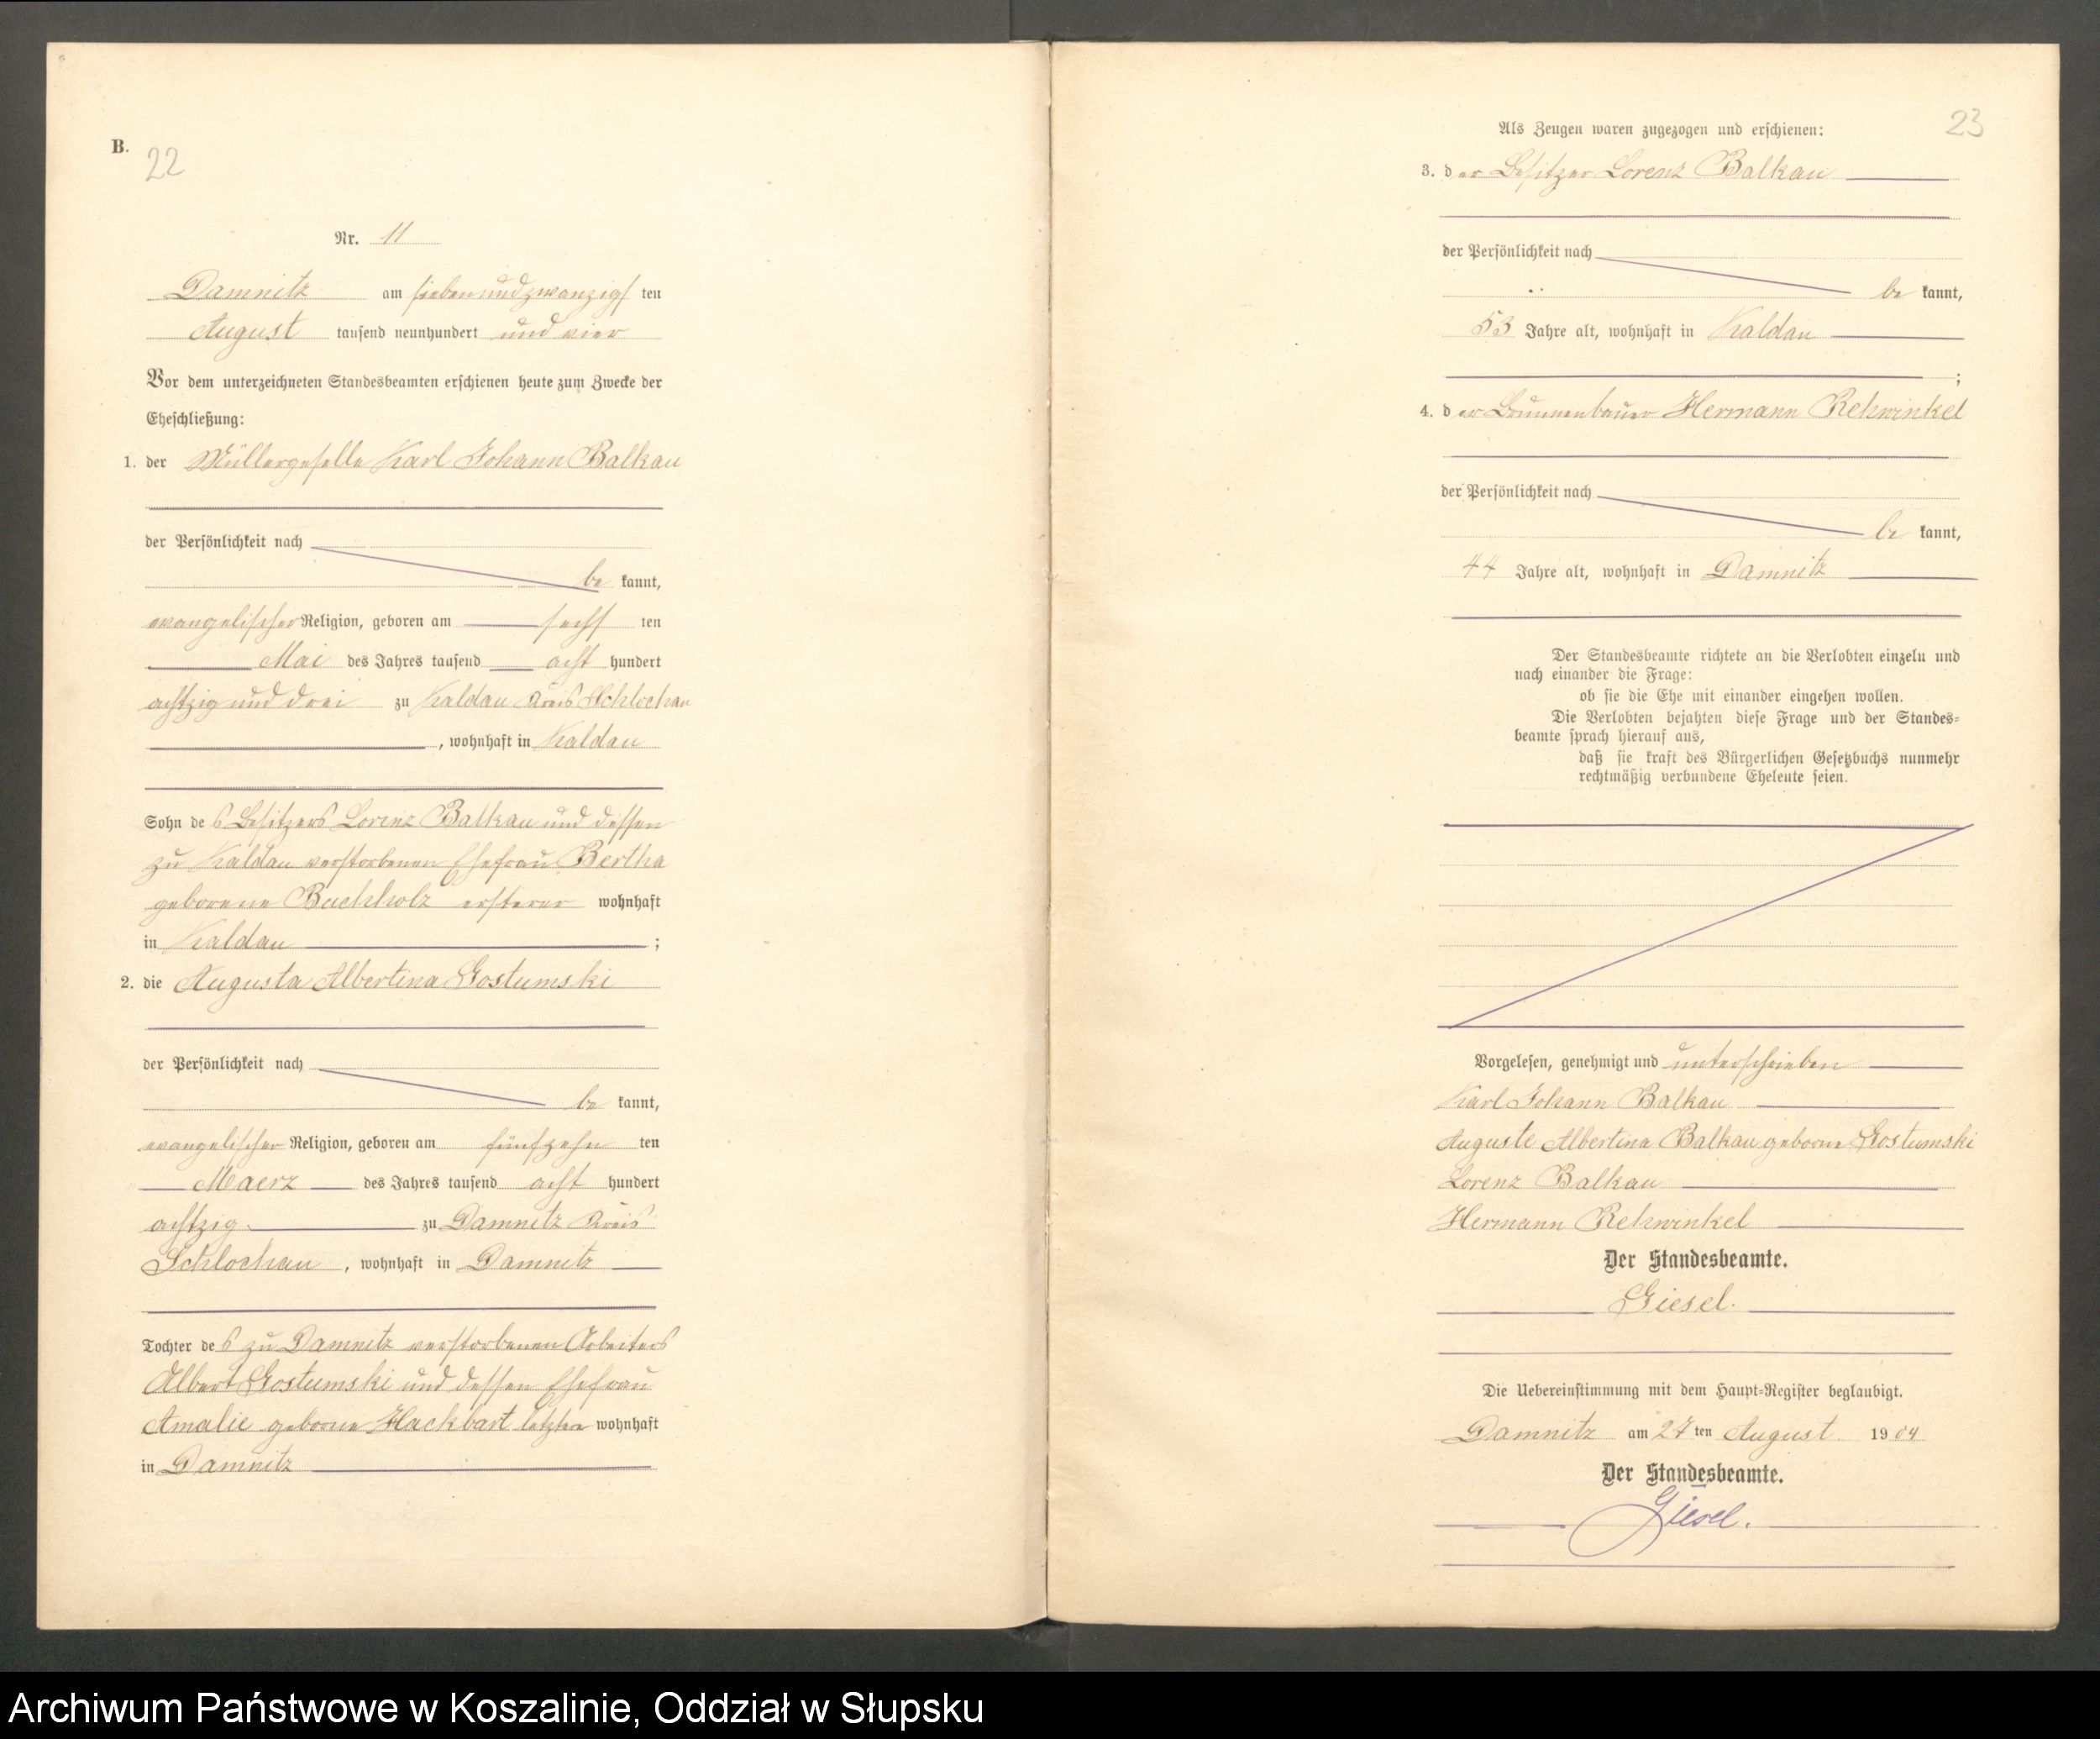 B.
22
Nr. 11
Damnitz am siebenundzwanzigsten
August tausend neunhundert und vier
Vor dem unterzeichneten Standesbeamten erschienen heute zum Zwecke der
Eheschließung:
1. der Müllergeselle Karl Johann Balkau
der Persönlichkeit nach
be kannt,
evangelischer Religion, geboren am sechs ten
Mai des Jahres tausend acht hundert
achtzig und drei zu Kaldau Kreis Schlochau
, wohnhaft in Kaldau
Sohn des Besitzers Lorenz Balkau und dessen
zu Kaldau verstorbenen Ehefrau Bertha
geborene Buchholz ersterer wohnhaft
in Kaldau ;
2. die Augusta Albertina Gostumski
der Persönlichkeit nach
be kannt,
evangelischer Religion, geboren am fünfzehn ten
Maerz des Jahres tausend acht hundert
achtzig zu Damnitz Kreis
Schlochau, wohnhaft in Damnitz
Tochter des zu Damnitz verstorbenen Arbeiters
Albert Gostumski und dessen Ehefrau
Amalie geborne Hackbart letztere wohnhaft
in Damnitz
23
Als Zeugen waren zugezogen und erschienen:
3. der Besitzer Lorenz Balkau
der Persönlichkeit nach
be kannt,
53 Jahre alt, wohnhaft in Kaldau
;
4. der Brunnenbauer Hermann Rehwinkel
der Persönlichkeit nach
be kannt,
44 Jahre alt, wohnhaft in Damnitz
Der Standesbeamte richtete an die Verlobten einzeln und
nach einander die Frage:
ob sie die Ehe mit einander eingehen wollen.
Die Verlobten bejahten diese Frage und der Standes=
beamte sprach hierauf aus,
daß sie kraft des Bürgerlichen Gesetzbuchs nunmehr
rechtmäßig verbundene Eheleute seien.
Vorgelesen, genehmigt und unterschrieben
Karl Johann Balkau
Auguste Albertina Balkau geborne Gostumski
Lorenz Balkau
Hermann Rehwinkel
Der Standesbeamte.
Giesel.
Die Uebereinstimmung mit dem Haupt=Register beglaubigt.
Damnitz am 27 ten August 1904
Der Standesbeamte.
Giesel.
Archiwum Państwowe w Koszalinie, Oddział w Słupsku